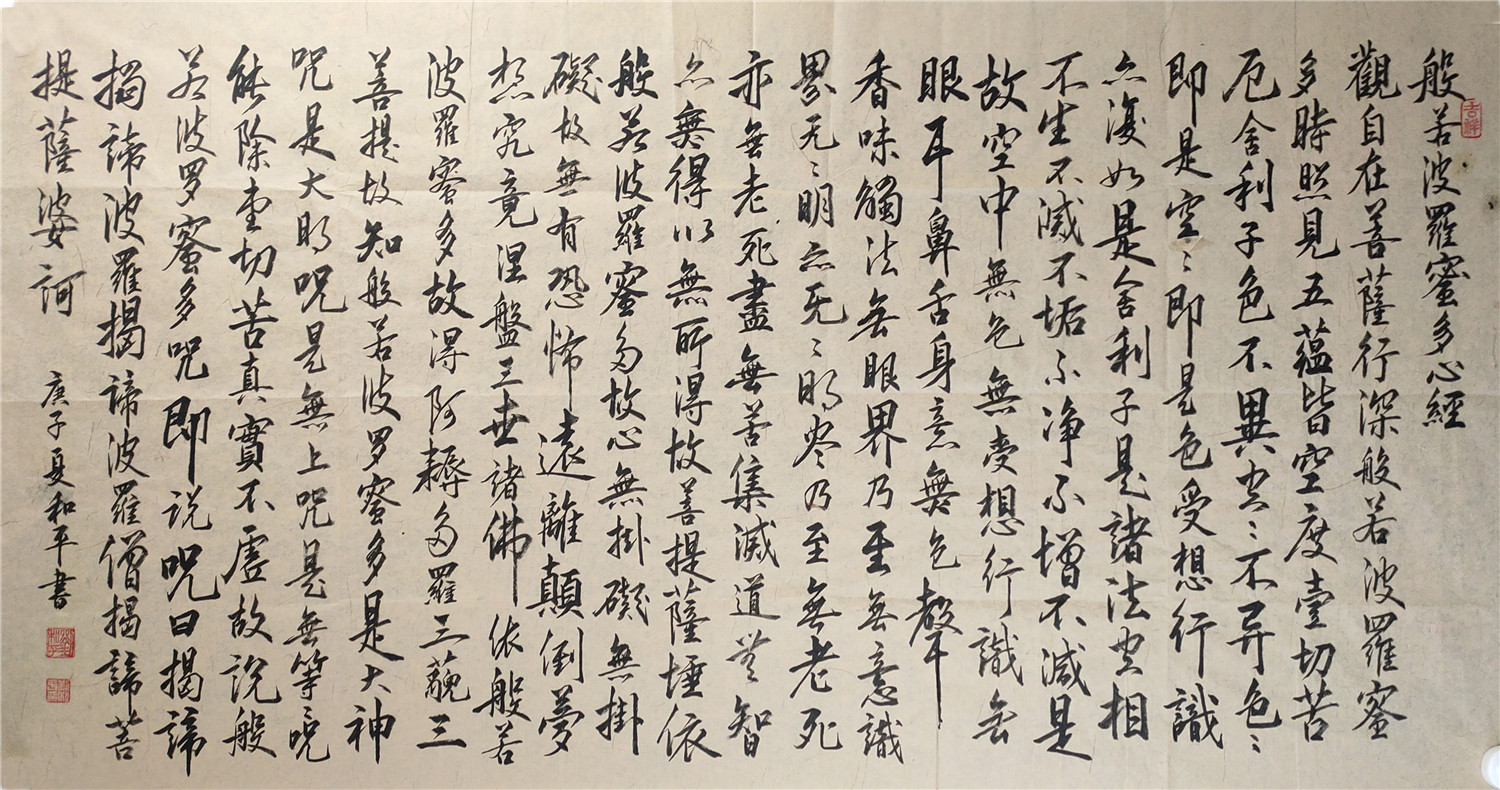 般若波羅蜜多心經
吉祥
觀自在菩薩行深般若波羅蜜
多時照見五蘊皆空度壹切苦
厄舍利子色不異空〻不异色〻
即是空〻即是色受想行識
亦復如是舍利子是諸法空相
不生不滅不垢不净不增不減是
故空中無色無受想行識無
眼耳鼻舌身意無色聲
香味觸法無眼界乃至無意識
界无〻明亦无〻明尽乃至無老死
亦無老死盡無苦集滅道無智
亦無得以無所得故菩提薩埵依
般若波羅蜜多故心無掛礙無掛
礙故無有恐怖遠離顛倒夢
想究竟涅盤三世諸佛依般若
波羅蜜多故得阿耨多羅三藐三
菩提故知般若波罗蜜多是大神
咒是大明咒是無上咒是無等〻咒
能除壹切苦真實不虛故說般
若波罗蜜多咒即说咒曰揭諦
揭諦波羅揭諦波羅僧揭諦菩
提薩婆訶
庚子夏和平書